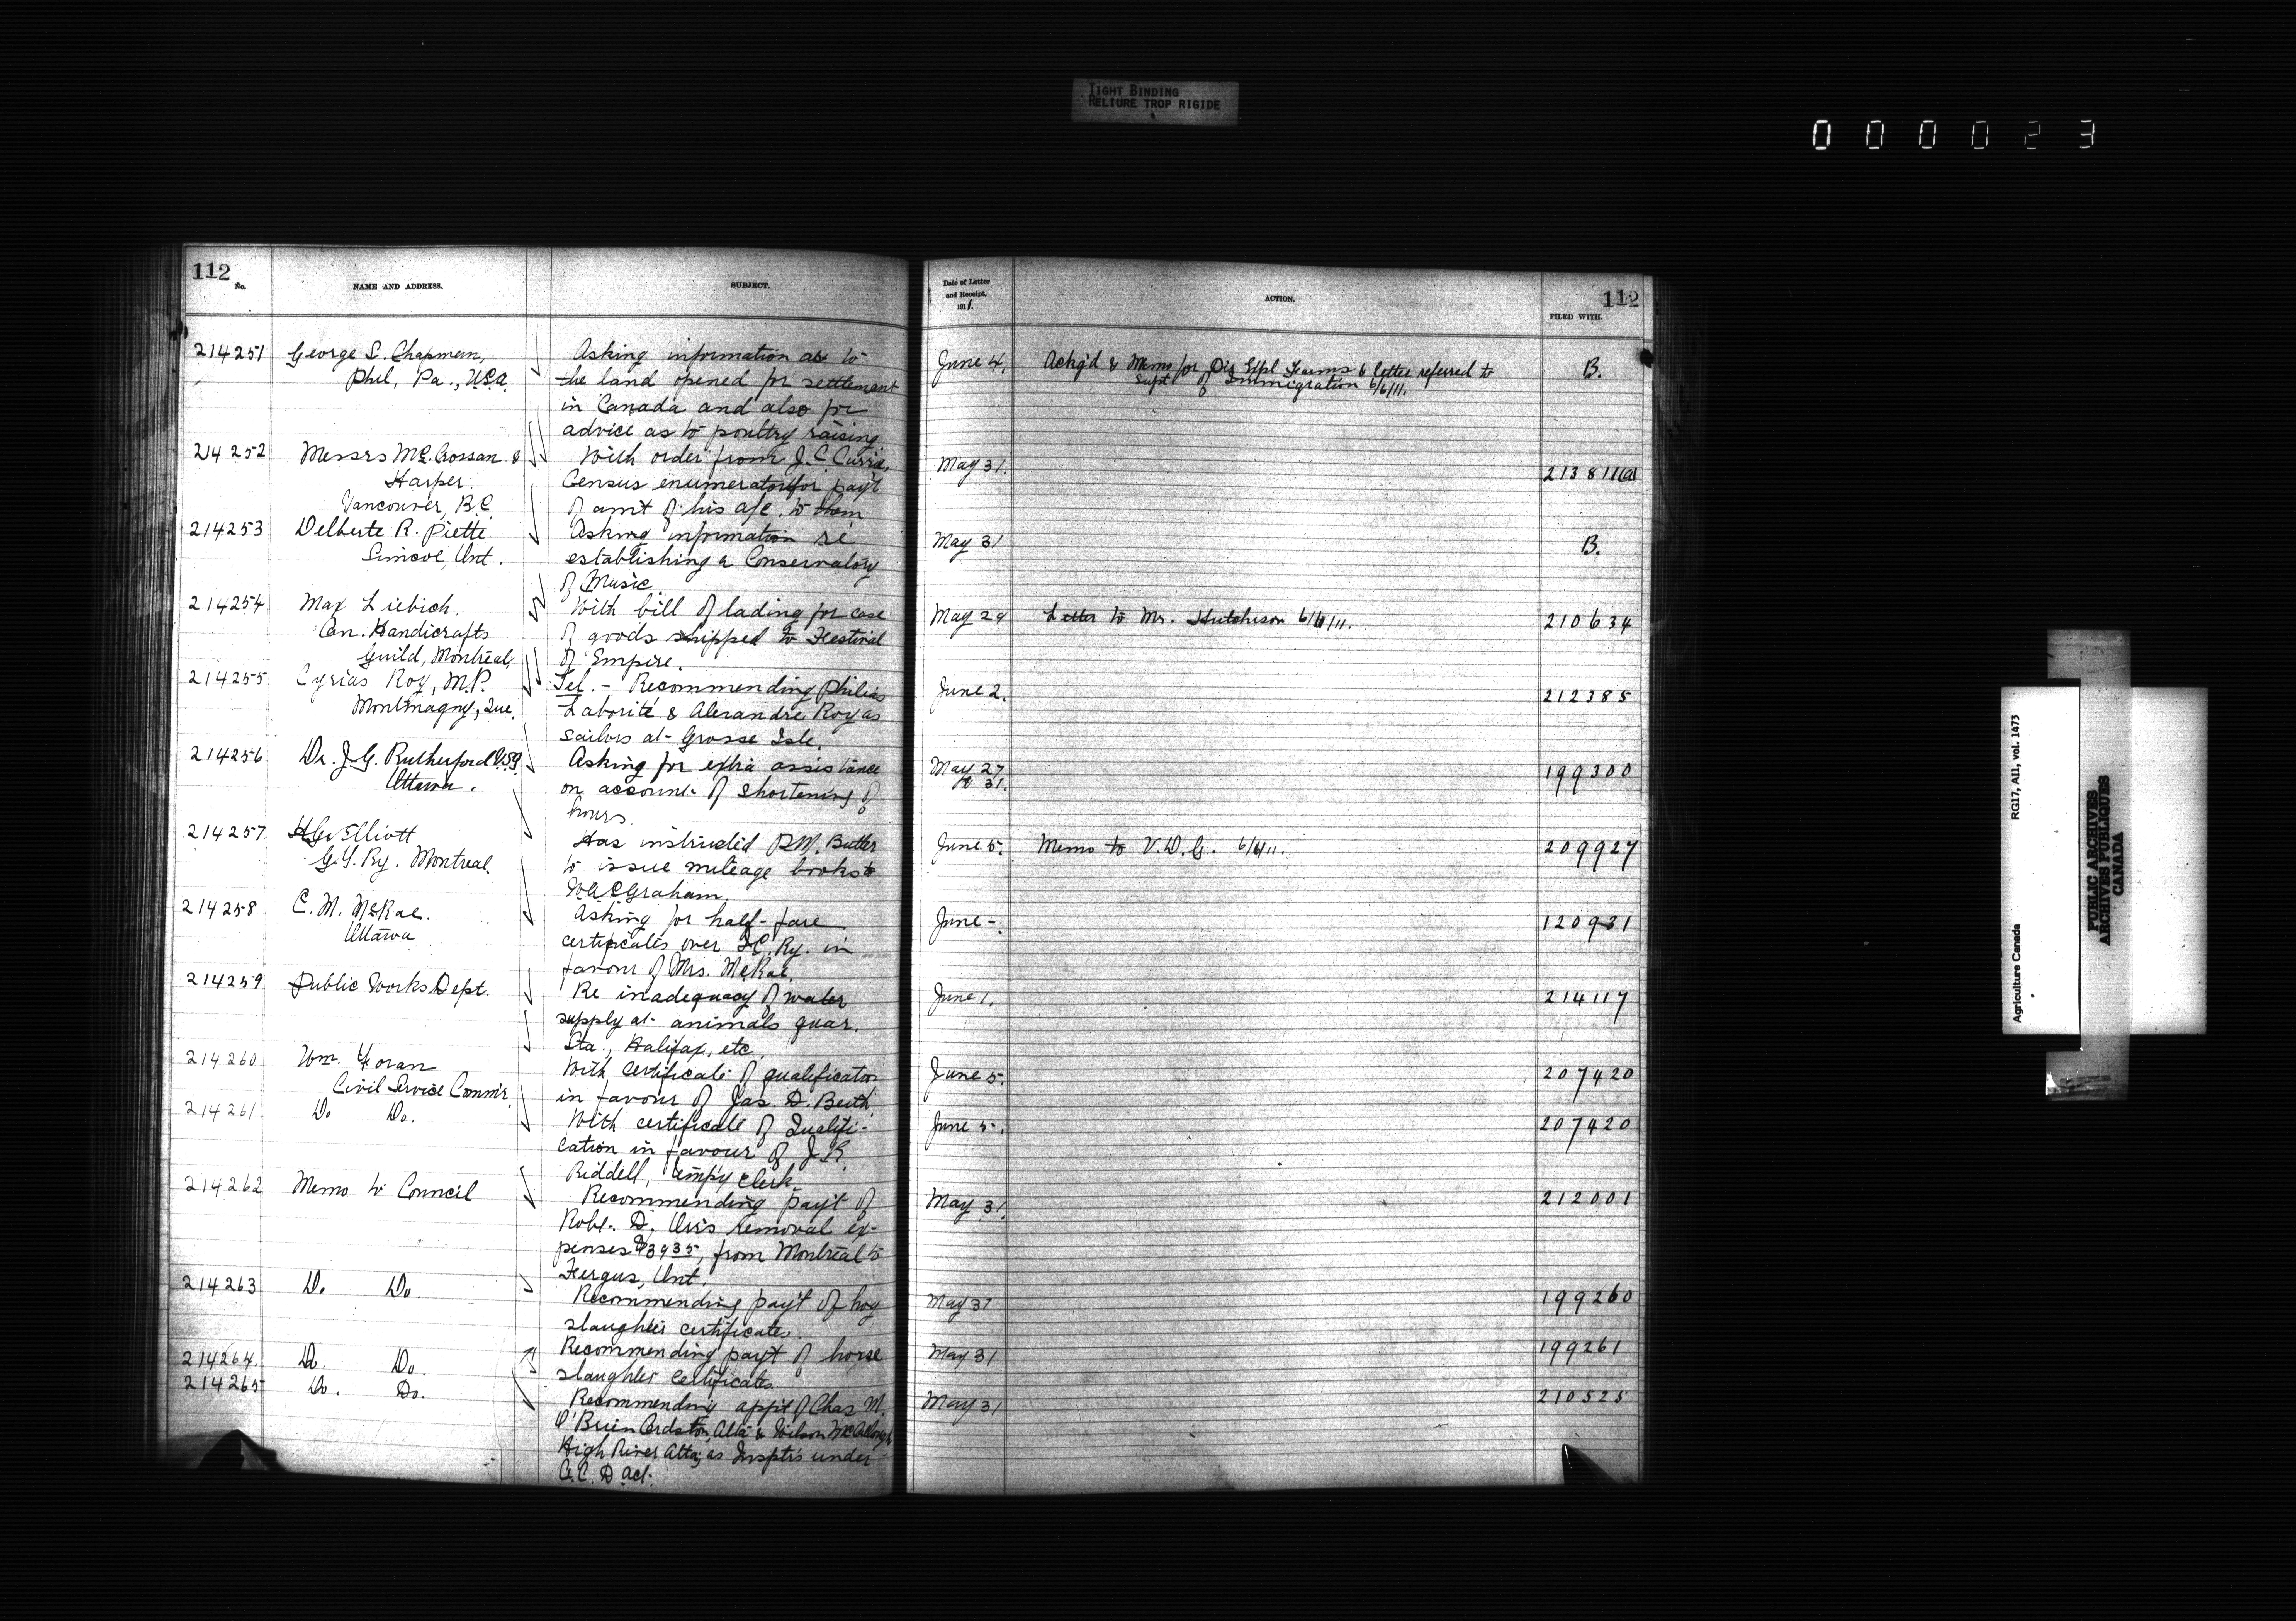 TIGHT BINDING
RELIURE TROP RIGIDE
000023
112
No.
NAME AND ADDRESS.
SUBJECT.
214251
George S. Chapman,
Phil, Pa., U.S.A.
Asking information as to
the land opened for settlement
in Canada and also for
advice as to poultry raising
214252
Messrs McCrossan &
Harper.
Vancouver, B.C.
With order from J. C. Currie,
Census enumerator for pay't
of am't of his a/c. to them
214253
Delberte R. Piette
Simcoe, Ont.
Asking information re
establishing a Conservatory
of Music.
214254
Max Liebich.
Can. Handicrafts
Guild, Montreal,
With bill of lading for case
of goods shipped to Festival
of Empire.
214255
Cyrias Roy, M.P.
Montmagny, Que.
Tel. - Recommending Philias
& Alexandre Roy as
sailors at Grosse Isle.
214256
Dr. J. G. Rutherford
Ottawa.
Asking for extra assistance
on account of shortening of
hours.
214257
Elliott
G.T. Ry. Montreal.
Has instructed P.M. Butler
to issue mileage books to
Graham.
214258
C. M. McRae.
Ottawa
Asking for half-fare
certificates over I.C. Ry. in
favour of Mrs. McRae.
214259
Public Works Dept.
Re inadequacy of water
supply at animals quar.
Sta., Halifax, etc.
214260
Wm. Foran
Civil Service Comm'r.
With certificate of qualification
in favour of Jas. D.
214261
Do Do.
With certificate of Qualifi-
cation in favour of J. R.
Riddell, temp'y clerk.
214262
Memo to Council
Recommending pay't of
Robt. D. Orr's removal ex-
penses $39 35, from Montreal to
Fergus, Ont.
214263
Do. Do
Recommending pay't of hog
slaughter certificates.
214264.
Do. Do.
Recommending pay't of horse
slaughter certificates
214265
Do. Do.
Recommending app't of Chas M.
O'Brien Cardston, Alta & Wilson
High River Alta, as Inspt'rs under
A. C. D. Act.
Date of Letter
and Receipt,
1911.
ACTION.
112
FILED WITH.
June 4.
Ackg'd & Memo for Dir. Expl Farms & letter referred to
Supt of Immigration 6/6/11.
B.
May 31.
213811(a)
May 31
B.
May 29
Letter to Mr. Hutchison 6/6/11.
210634
June 2.
212385
May 27
R 31.
199300
June 5.
Memo to V.D.G. 6/6/11.
209927
June -.
120931
June 1.
214117
June 5.
207420
June 5.
207420
May 31.
212001
May 31
199260
May 31
199261
May 31
210525
Agriculture Canada
RG17, AII, vol. 1473
PUBLIC ARCHIVES
ARCHIVES PUBLIQUES
CANADA